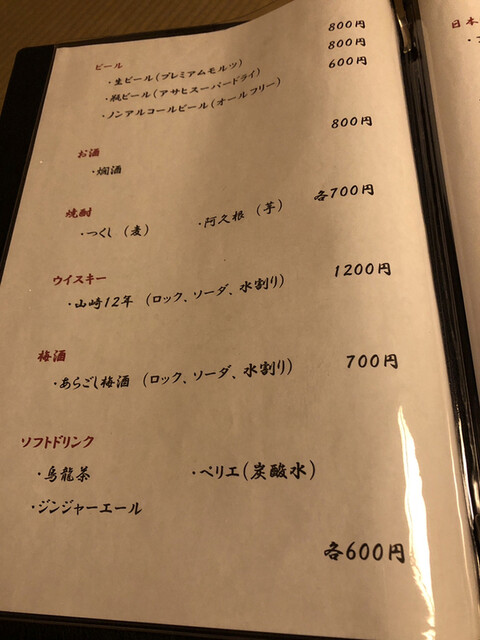 ビール
・生ビール(プレミアムモルツ) 800円
・瓶ビール(アサヒスーパードライ) 800円
・ノンアルコールビール(オールフリー) 600円
お酒
・燗酒 800円
焼酎
・つくし (麦) ・阿久根 (芋) 各700円
ウイスキー
・山崎12年 (ロック、ソーダ、水割り) 1200円
梅酒
・あらごし梅酒 (ロック、ソーダ、水割り) 700円
ソフトドリンク
・烏龍茶 ・ペリエ(炭酸水)
・ジンジャーエール
各600円
日本